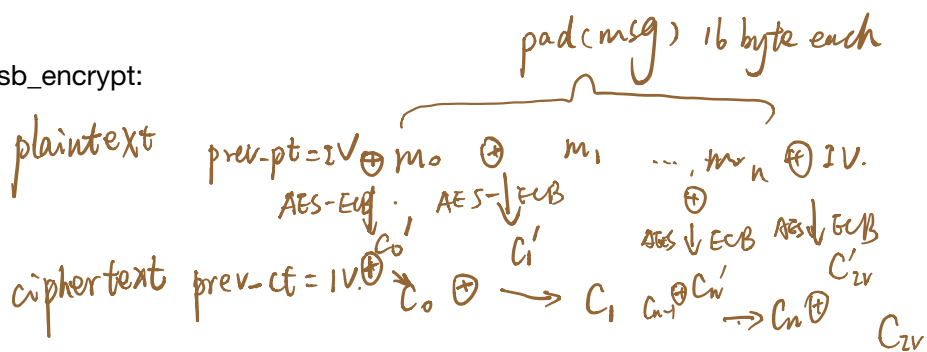 pad(msg) 16 byte each
sb_encrypt:
plaintext prev-pt = IV ⊕ m₀ ⊕ m₁ ..., mₙ ⊕ IV.
AES-ECB AES-ECB AES ECB AES ECB
C₀' C₁' Cₙ' C'IV
ciphertext prev-ct = IV. ⊕ → C₀ ⊕ → C₁ Cₙ₋₁ ⊕ → Cₙ ⊕ CIV